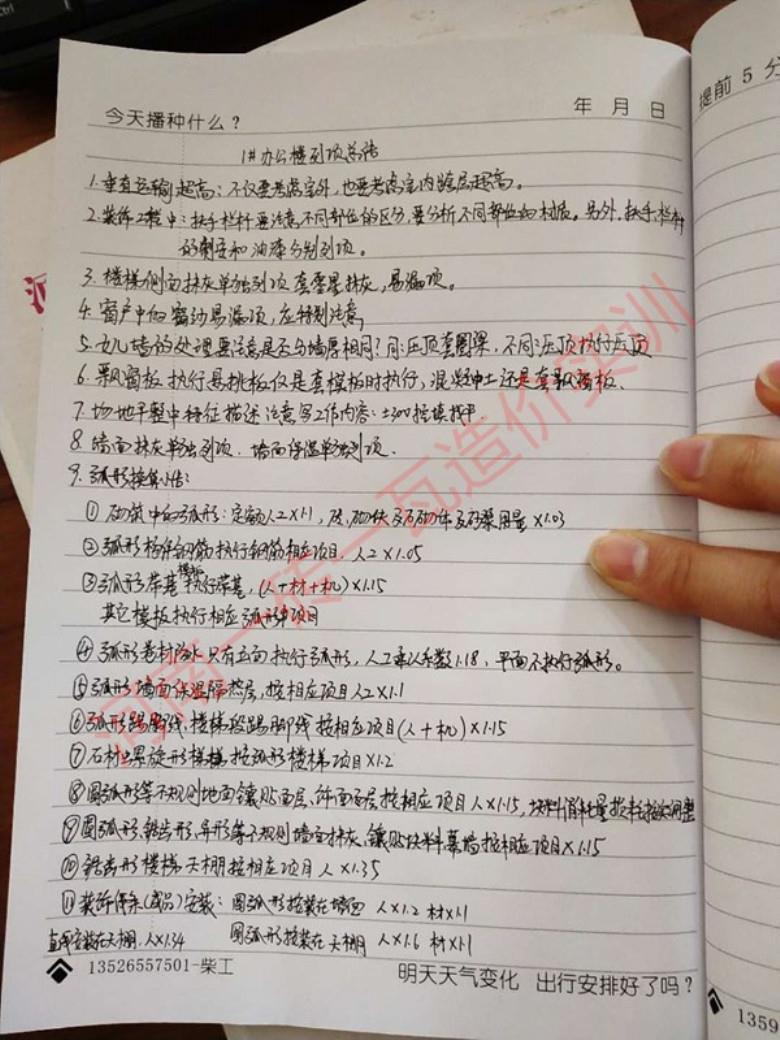 今天播种什么?
年 月 日
提前 5 分
1#办公楼列项总结
1.垂直运输超高:不仅要考虑室外,也要考虑室内跨层超高。
2.装饰工程中:扶手栏杆要注意不同部位的区分,要分析不同部位的材质。另外,扶手、栏杆
的制安和油漆分别列项。
3.楼梯侧面抹灰单独列项套零星抹灰,易漏项。
4.窗户中的窗台易漏项,应特别注意
5.女儿墙的处理要注意是否与墙厚相同?同:压顶套圈梁,不同:压顶执行压顶
6.飘窗板执行悬挑板仅是套模板时执行,混凝土还是套飘窗板、
7.场地平整中特征描述注意写工作内容:±300挖填找平
8.墙面抹灰单独列项.墙面保温单独列项、
9.弧形换算小结:
①砌筑中的弧形:定额人工×1.1,砖、砌块及石砌体及砂浆用量×1.03
②弧形构件钢筋执行钢筋相应项目,人工×1.05
③弧形带基模板执行带基,(人+材+机)×1.15
其它模板执行相应弧形项目
④弧形卷材防水只有立面执行弧形,人工乘以系数1.18,平面不执行弧形。
⑤弧形墙面保温隔热层,按相应项目人工×1.1
⑥弧形踢脚线、楼梯段踢脚线按相应项目(人+机)×1.15
⑦石材螺旋形楼梯按弧形楼梯项目×1.2
⑧圆弧形等不规则地面镶贴面层、饰面面层按相应项目人×1.15,块料消耗量损耗按实调整
⑨圆弧形、锯齿形、异形等不规则墙面抹灰、镶贴块料、幕墙按相应项目×1.15
⑩锯齿形楼梯天棚按相应项目人×1.35
⑪装饰线条(成品)安装:圆弧形按装在墙面 人×1.2 材×1.1
直线安装在天棚,人×1.34 圆弧形按装在天棚 人×1.6 材×1.1
13526557501-柴工
明天天气变化 出行安排好了吗?
1359
河南一砖一瓦造价实训